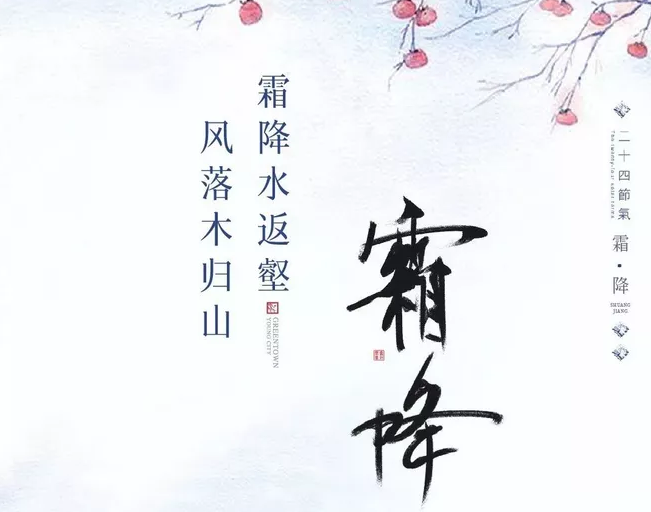 二十四節氣
The twenty-four solar terms
霜·降
SHUANG
JIANG
霜降
霜降水返壑
风落木归山
GREENTOWN
YOUNG CITY